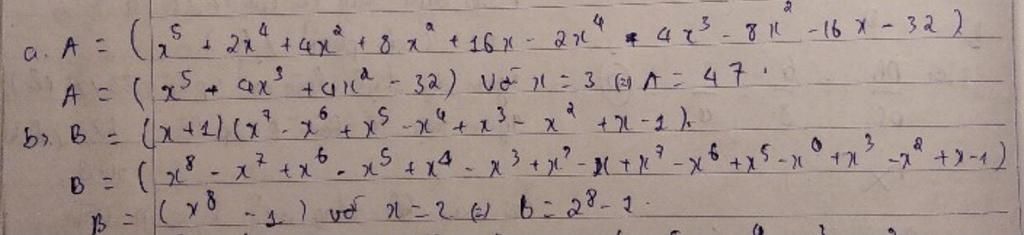 a. A = ( x⁵ + 2x⁴ + 4x² + 8x² + 16x - 2x⁴ + 4x³ - 8x² - 16x - 32 )
A = ( x⁵ + 4x³ + 4x² - 32 ) với x = 3 (=) A = 47.
b). B = (x+1) (x⁷ - x⁶ + x⁵ - x⁴ + x³ - x² + x - 1).
B = ( x⁸ - x⁷ + x⁶ - x⁵ + x⁴ - x³ + x² - x + x⁷ - x⁶ + x⁵ - x⁴ + x³ - x² + x - 1 )
B = ( x⁸ - 1 ) với x = 2 (=) b = 2⁸ - 1.